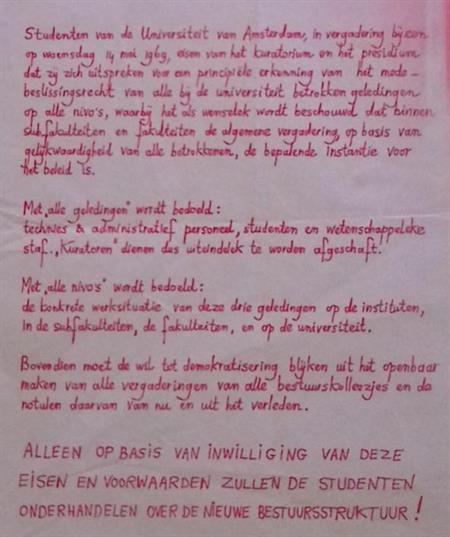 Studenten van de Universiteit van Amsterdam, in vergadering bijeen
op woensdag 14 mei 1969, eisen van het kuratorium en het presidium
dat zij zich uitspreken voor een principiële erkenning van het mede-
beslissingsrecht van alle bij de universiteit betrokken geledingen
op alle nivo's, waarbij het als wenselek wordt beschouwd dat binnen
subfakulteiten en fakulteiten de algemene vergadering, op basis van
gelijkwaardigheid van alle betrokkenen, de bepalende instantie voor
het beleid is.
Met „alle geledingen" wordt bedoeld:
technies & administratief personeel, studenten en wetenschappeleke
staf. „Kuratoren" dienen dus uiteindelek te worden afgeschaft.
Met „alle nivo's" wordt bedoeld:
de konkrete werksituatie van deze drie geledingen op de instituten,
in de subfakulteiten, de fakulteiten, en op de universiteit.
Bovendien moet de wil tot demokratisering blijken uit het openbaar
maken van alle vergaderingen van alle bestuurskolleezjes en de
notulen daarvan van nu en uit het verleden.
ALLEEN OP BASIS VAN INWILLIGING VAN DEZE
EISEN EN VOORWAARDEN ZULLEN DE STUDENTEN
ONDERHANDELEN OVER DE NIEUWE BESTUURSSTRUKTUUR!